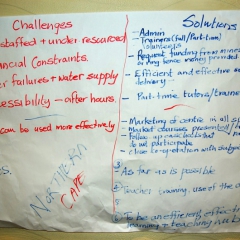 Challenges
staffed + under resourced
ncial Constraints.
r failures + water supply
essibility - after hours.
can be used more effectively
S.
NORTHERN
CAPE
Solutions
- Admin
Trainers (full/Part-time)
volunteers
- Request funding from
- Efficient and effective
delivery
- Part-time tutors/trainer
- Marketing of centre in all
- Market courses presented
- Follow up case
do not participate
- Close co-operation with
As far as is possible
Teacher training, use of the
To be an efficient, effective
training + teaching